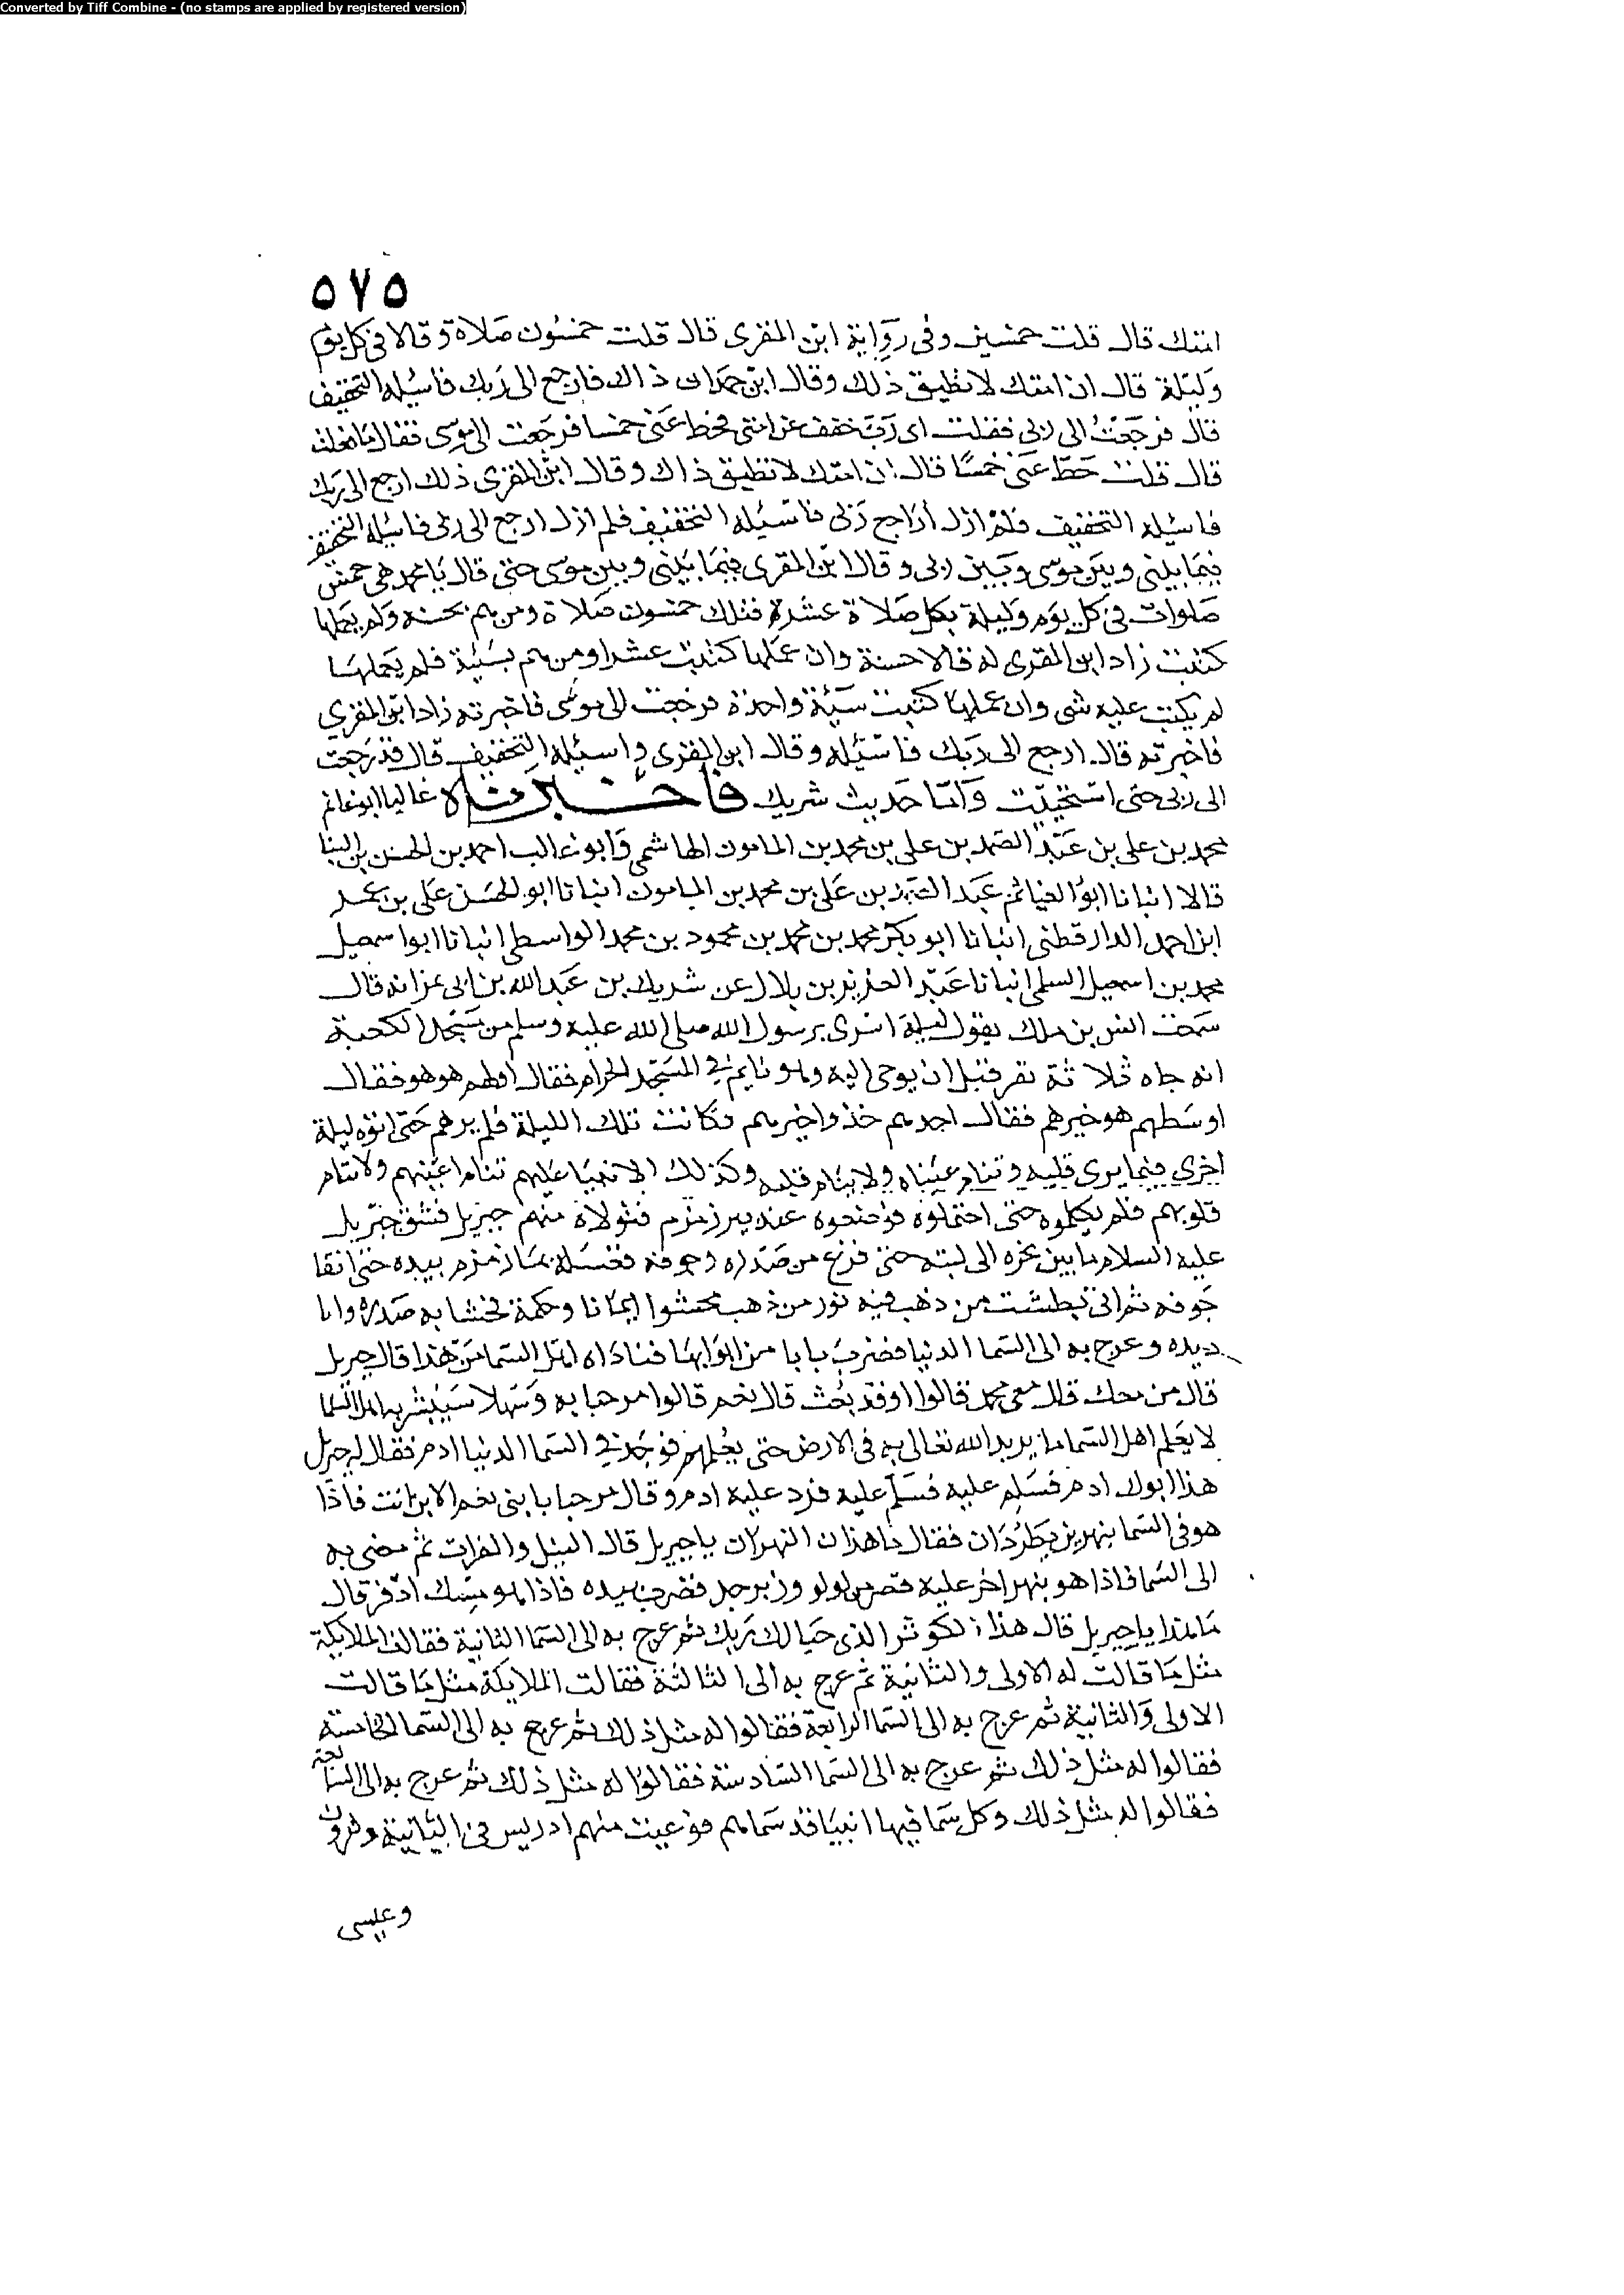 Converted by Tiff Combine - (no stamps are applied by registered version)
٥٧٥
امتك قال قلت خمسين وفى رواية ابن المقرى قال قلت خمسون صلاة وقالا فى كل يوم
وليلة قال ان امتك لا تطيق ذلك وقال ابن حمدان ذاك فارجع الى ربك فاسئله التخفيف
قال فرجعت الى ربى فقلت اى رب خفف عن امتى فحط عنى خمسا فرجعت الى موسى فقال ما فعلت
قال قلت حط عنى خمسا قال ان امتك لا تطيق ذاك وقال ابن المقرى ذلك ارجع الى ربك
فاسئله التخفيف فلم ازل اراجع ربى فاسئله التخفيف فلم ازل ارجع الى ربى فاسئله التخفيف
فيما بينى وبين موسى وبين ربى وقال ابن المقرى فيما بينى وبين موسى حتى قال يا محمد هى خمس
صلوات فى كل يوم وليلة بكل صلاة عشرة فتلك خمسون صلاة ومن هم بحسنة ولم يعملها
كتبت زاد ابن المقرى له قالا حسنة وان عملها كتبت عشرا ومن هم بسيئة فلم يعملها
لم يكتب عليه شى وان عملها كتبت سيئة واحدة فرجعت الى موسى فاخبرته زاد ابن المقري
فاخبرته قال ارجع الى ربك فاسئله وقال ابن المقرى واسئله التخفيف قال قد رجعت
الى ربى حتى استحييت وأما حديث شريك فاخبرناه عاليا ابو غانم
محمد بن على بن عبد الصمد بن على بن محمد بن المامون الهاشمى وابو غالب احمد بن الحسن بن البنا
قالا انبانا ابو الغنائم عبد الصمد بن على بن محمد بن المامون انبانا ابو الحسن على بن عمر
ابن احمد الدارقطنى انبانا ابو بكر محمد بن محمد بن محمود بن محمد الواسطى انبانا ابوا سمعيل
محمد بن اسمعيل السلمى انبانا عبد العزيز بن بلال عن شريك بن عبد الله بن ابى نمر انه قال
سمعت انس بن ملك يقول ليلة اسرى برسول الله صلى الله عليه وسلم من مسجد الكعبة
انه جاه ثلاثة نفر قبل ان يوحى اليه وهو نايم في المسجد الحرام فقال اولهم هو هو فقال
اوسطهم هو خيرهم فقال احدهم خذوا خيرهم فكانت تلك الليلة فلم يرهم حتى اتوه ليلة
اخرى فيما يرى قلبه وتنام عيناه ولا ينام قلبه وكذلك الانبيا عليهم تنام اعينهم ولا تنام
قلوبهم فلم يكلموه حتى احتملوه فوضعوه عند بير زمزم فتولاه منهم جبريل فشق جبريل
عليه السلام ما بين نحره الى لبته حتى فرغ من صدره وجوفه فغسله بما زمزم بيده حتى انقا
جوفه ثم اتى بطشت من ذهب فيه تور من ذهب محشوا ايمانا وحكمة فحشا به صدره واا
ديده وعرج به الى السما الدنيا فضرب بابا من ابوابها فناداه اهل السما من هذا قال جبريل
قال من معك قال معى محمد قالوا اوقد بعث قال نعم قالوا مرحبا به وسهلا سيبشر به اهل السما
لا يعلم اهل السما ما يريد الله تعالى به فى الارض حتى يعلمهم فوجد في السما الدنيا ادم فقال له جبريل
هذا ابوك ادم فسلم عليه فسلم عليه فرد عليه ادم وقال مرحبا بابنى نعم الابن انت فاذا
هو فى السما بنهرين يطردان فقال ما هذان النهران يا جبريل قال النيل والفرات ثم مضى به
الى السما فاذا هو بنهر اخر عليه قصر لولو وزبرجد فضرب بيده فاذا هو مسك اذفر قال
ما هذا يا جبريل قال هذا الكوثر الذى خبا لك ربك ثم عرج به الى السما الثانية فقالت الملايكة
مثل ما قالت له الاولى والثانية ثم عرج به الى الثالثة فقالت الملايكة مثل ما قالت
الاولى والثانية ثم عرج به الى السما الرابعة فقالوا له مثل ذلك ثم عرج به الى السما الخامسة
فقالوا له مثل ذلك ثم عرج به الى السما السادسة فقالوا له مثل ذلك ثم عرج به الى السابعة
فقالوا له مثل ذلك وكل سما فيها انبيا قد سماهم فوعيت منهم ادريس فى الثانية وهرون
وعيسى